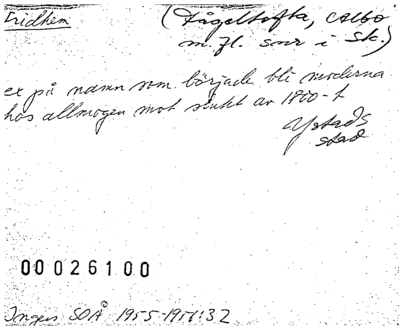 Fridhem
(Fågeltofta, Albo
m.fl. snr i Sk.)
ex på namn som började bli moderna
hos allmogen mot slutet av 1800-t
Ystads
stad
00026100
Ingers SOÅ 1955-1956:32